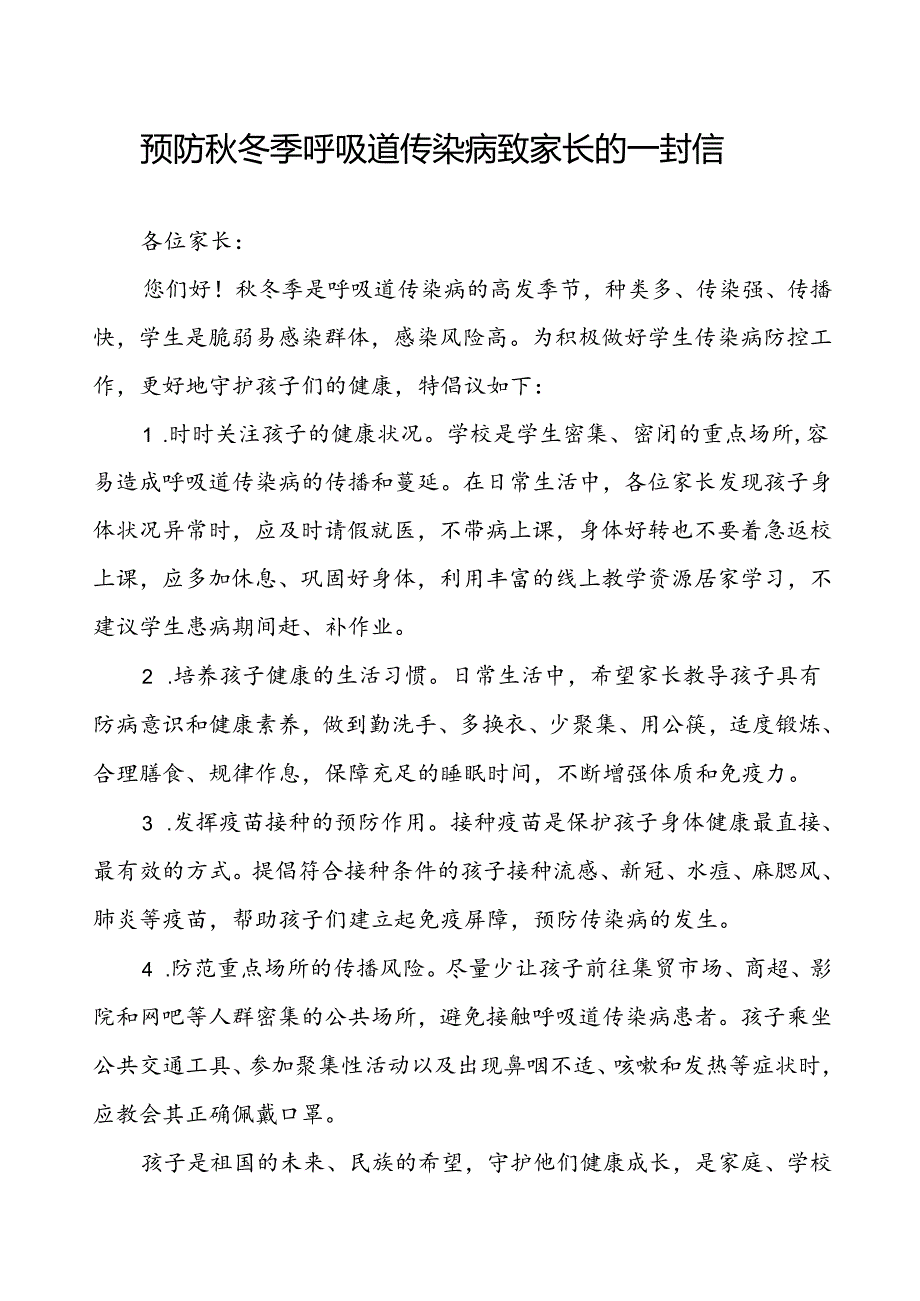 预防秋冬季呼吸道传染病致家长的一封信
各位家长：
您们好！秋冬季是呼吸道传染病的高发季节，种类多、传染强、传播
快，学生是脆弱易感染群体，感染风险高。为积极做好学生传染病防控工
作，更好地守护孩子们的健康，特倡议如下：
1 .时时关注孩子的健康状况。学校是学生密集、密闭的重点场所,容
易造成呼吸道传染病的传播和蔓延。在日常生活中，各位家长发现孩子身
体状况异常时，应及时请假就医，不带病上课，身体好转也不要着急返校
上课，应多加休息、巩固好身体，利用丰富的线上教学资源居家学习，不
建议学生患病期间赶、补作业。
2 .培养孩子健康的生活习惯。日常生活中，希望家长教导孩子具有
防病意识和健康素养，做到勤洗手、多换衣、少聚集、用公筷，适度锻炼、
合理膳食、规律作息，保障充足的睡眠时间，不断增强体质和免疫力。
3 .发挥疫苗接种的预防作用。接种疫苗是保护孩子身体健康最直接、
最有效的方式。提倡符合接种条件的孩子接种流感、新冠、水痘、麻腮风、
肺炎等疫苗，帮助孩子们建立起免疫屏障，预防传染病的发生。
4 .防范重点场所的传播风险。尽量少让孩子前往集贸市场、商超、影
院和网吧等人群密集的公共场所，避免接触呼吸道传染病患者。孩子乘坐
公共交通工具、参加聚集性活动以及出现鼻咽不适、咳嗽和发热等症状时，
应教会其正确佩戴口罩。
孩子是祖国的未来、民族的希望，守护他们健康成长，是家庭、学校